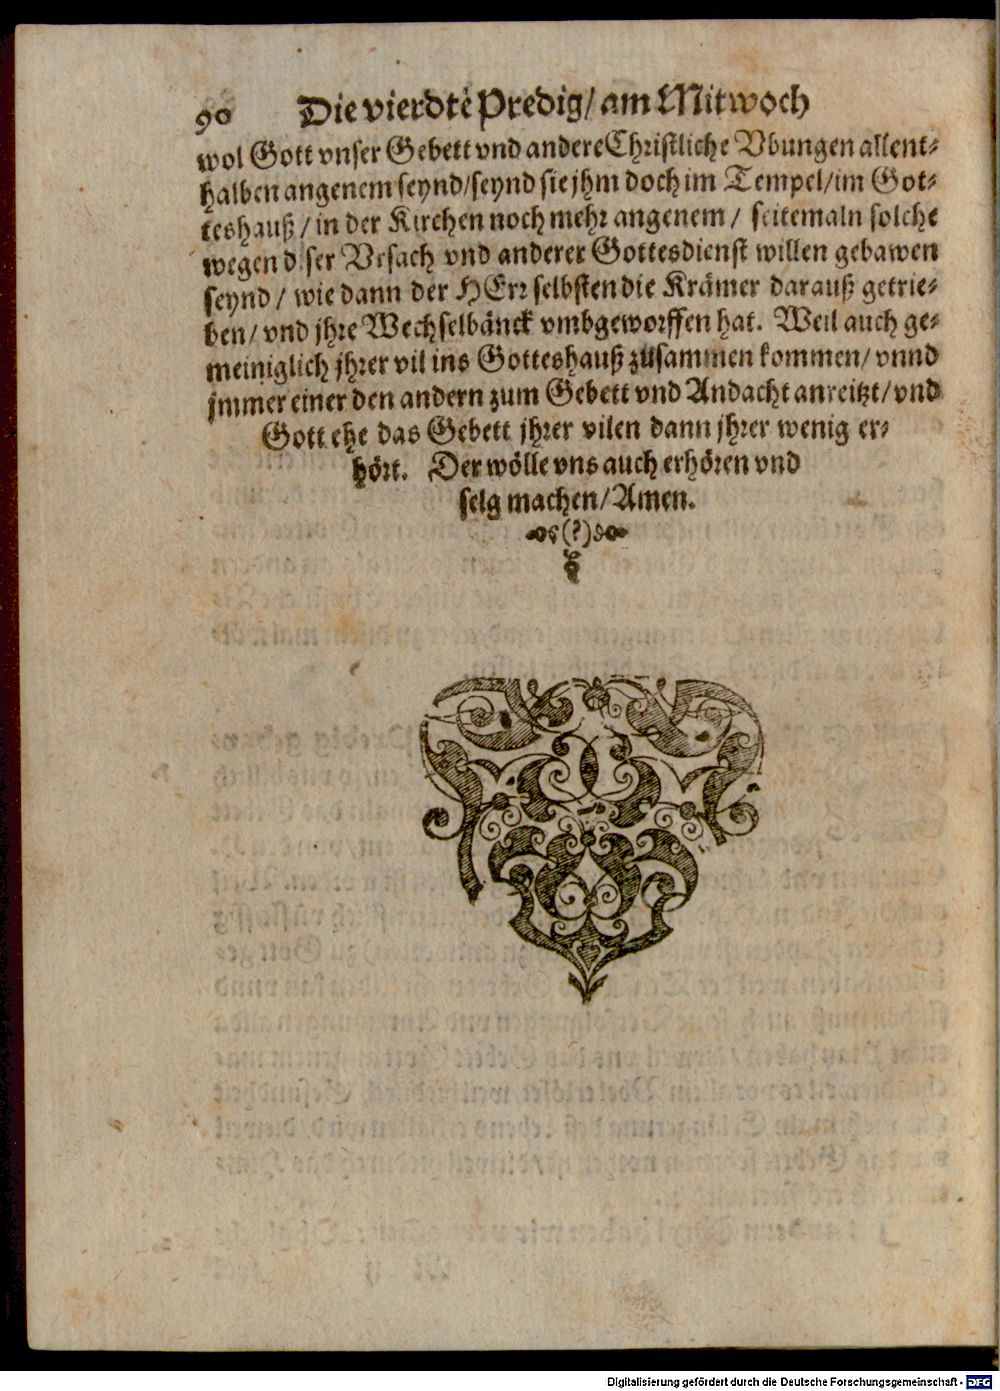 90 Die vierdte Predig/ am Mitwoch
wol Gott vnser Gebett vnd andere Christliche Vbungen allent-
halben angenem seynd/ seynd sie jhm doch im Tempel/ im Got-
teshauß/ in der Kirchen noch mehr angenem/ seitemaln solche
wegen diser Vrsach vnd anderer Gottesdienst willen gebawen
seynd/ wie dann der HErr selbsten die Krämer darauß getrie-
ben/ vnd jhre Wechselbänck vmbgeworffen hat. Weil auch ge-
meiniglich jhrer vil ins Gotteshauß zusammen kommen/ vnnd
jmmer einer den andern zum Gebett vnd Andacht anreitzt/ vnd
Gott ehe das Gebett jhrer vilen dann jhrer wenig er-
hört. Der wölle vns auch erhören vnd
selg machen/ Amen.
(?)
Digitalisierung gefördert durch die Deutsche Forschungsgemeinschaft - DFG